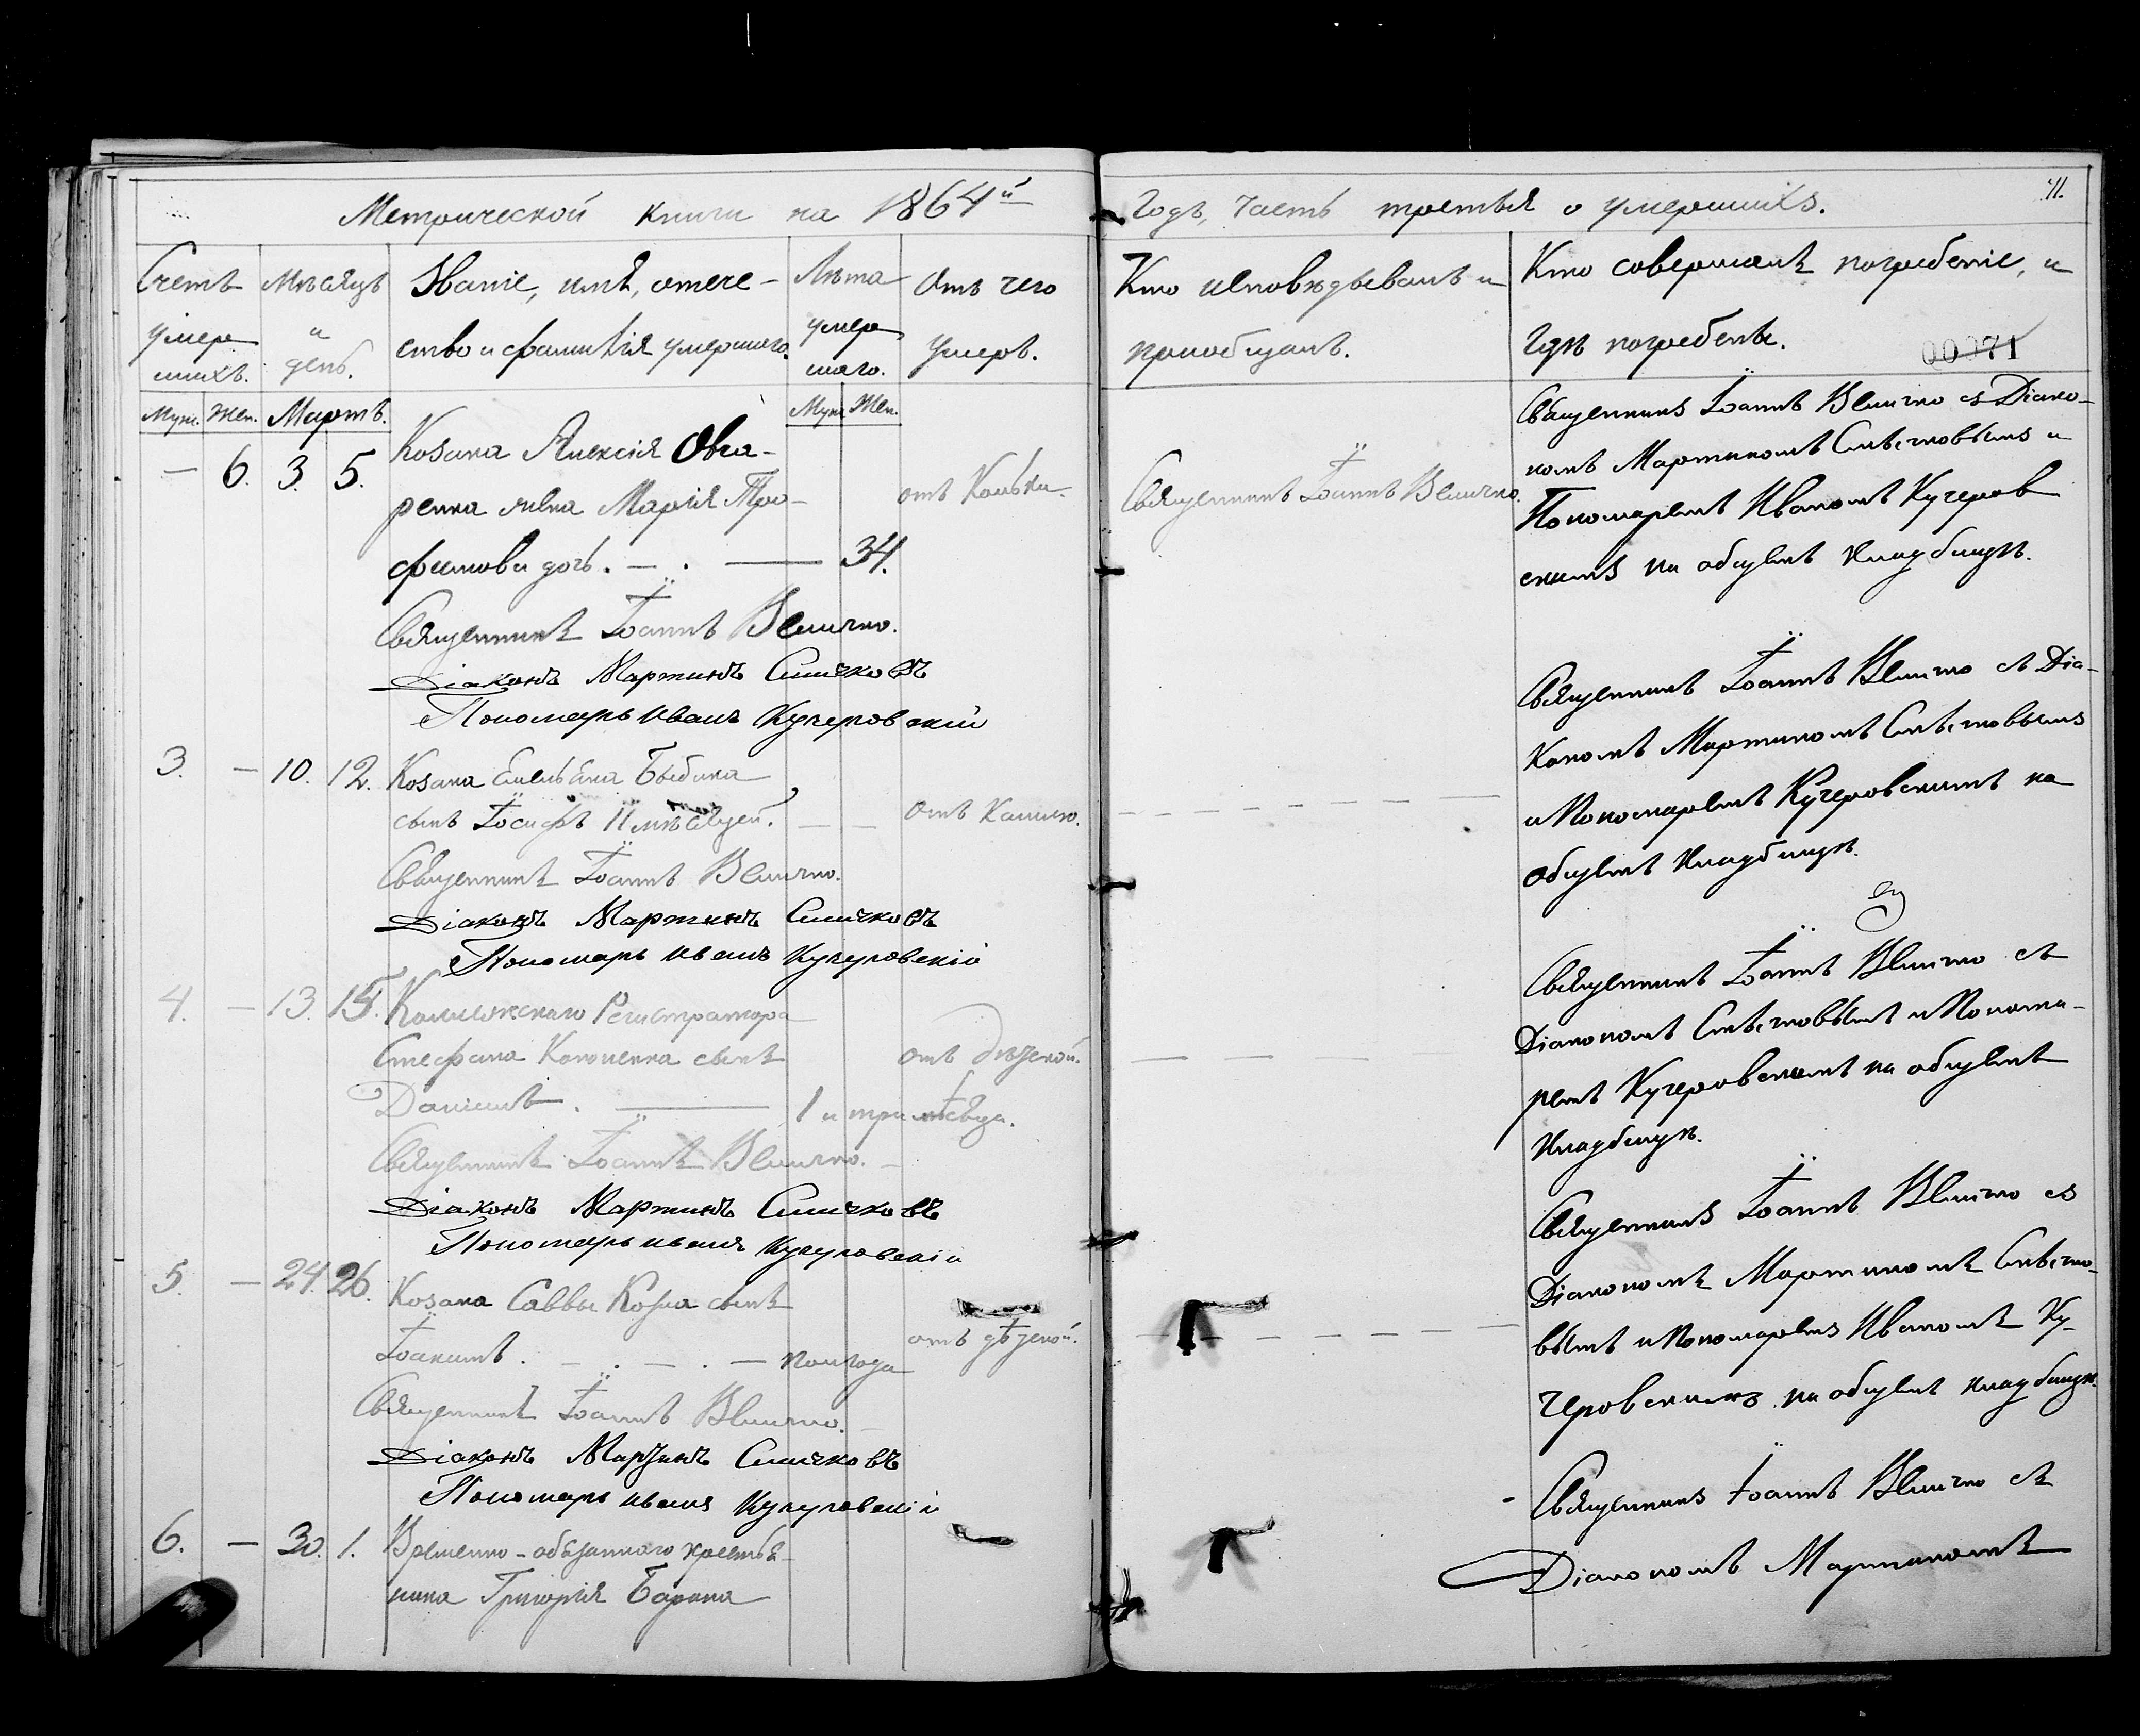 Метрической книги на 1864й
Счетъ
умер
шихъ.
Мѣсяцъ
и
день.
Званіе, имя, отече-
ство и фамилія умершаго.
Лѣта
умер
шаго.
Отъ чего
умеръ.
Муж. Жен. Мартъ.
Муж. Жен.
— 6. 3. 5.
Козака Алексія Овча-
ренка жена Марія Тро-
фимова дочь. — . — 34.
отъ
Священникъ Іоаннъ Величко.
Діаконъ Мартинъ
Пономарь Иванъ Кучеровскій
3. — 10. 12. Козака Емельяна
сынъ Іосифъ 11 мѣсяцей.
отъ Кашлю.
Священникъ Іоаннъ Величко.
Діаконъ Мартинъ
Пономарь Иванъ Кучеровскій
4. — 13. 15. Коллежскаго Регистратора
Стефана Кононенка сынъ
Даніилъ. — 1 и три мѣсяца.
отъ
Священникъ Іоаннъ Величко.
Діаконъ Мартинъ
Пономарь Иванъ Кучеровскій
5. — 24. 26. Козака Саввы сынъ
Іоакимъ. — . — . — полгода
отъ
Священникъ Іоаннъ Величко.
Діаконъ Мартинъ
Пономарь Иванъ Кучеровскій
6. — 30. 1. Временно-обязаннаго крестья-
нина Григорія Барана
годъ, часть третья о умершихъ.
71.
Кто исповѣдывалъ и
пріобщалъ.
Кто совершалъ погребеніе, и
гдѣ погребены.
00071
Священникъ Іоаннъ Величко.
Священникъ Іоаннъ Величко съ Діако-
номъ Мартиномъ и
Пономаремъ Иваномъ Кучеров
скимъ на общемъ кладбищѣ.
Священникъ Іоаннъ Величко съ Діа-
кономъ Мартиномъ
и Пономаремъ Кучеровскимъ на
общемъ кладбищѣ.
Священникъ Іоаннъ Величко съ
Діакономъ и Понома-
ремъ Кучеровскимъ на общемъ
кладбищѣ.
Священникъ Іоаннъ Величко съ
Діакономъ Мартиномъ
вымъ и Пономаремъ Иваномъ Ку-
черовскимъ на общемъ кладбищѣ.
Священникъ Іоаннъ Величко съ
Діакономъ Мартиномъ